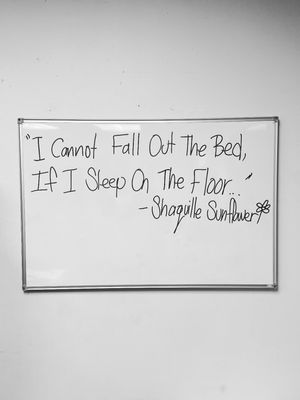 "I Cannot Fall Out The Bed,
If I Sleep On The Floor..."
- Shaquille Sunflower